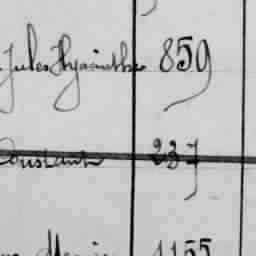 Jules Hyacinthe 859
Constant 237
Marie 1155